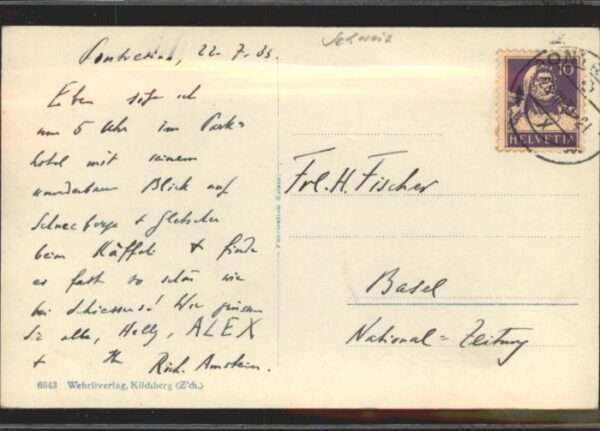 Schweiz
Pontresina, 22.7.33.
Eben sitze ich
um 5 Uhr im Park=
hotel mit seinem
wunderbaren Blick auf
Schneeberge + Gletscher
beim Käffeli + finde
es fast so schön wie
bei Wir grüssen
Sie alle, Helly, ALEX
+ Ihr Rich. Amstein.
10
HELVETIA
Frl. H. Fischer
Basel
National=Zeitung
6643 Wehrliverlag, Kilchberg (Zch.)